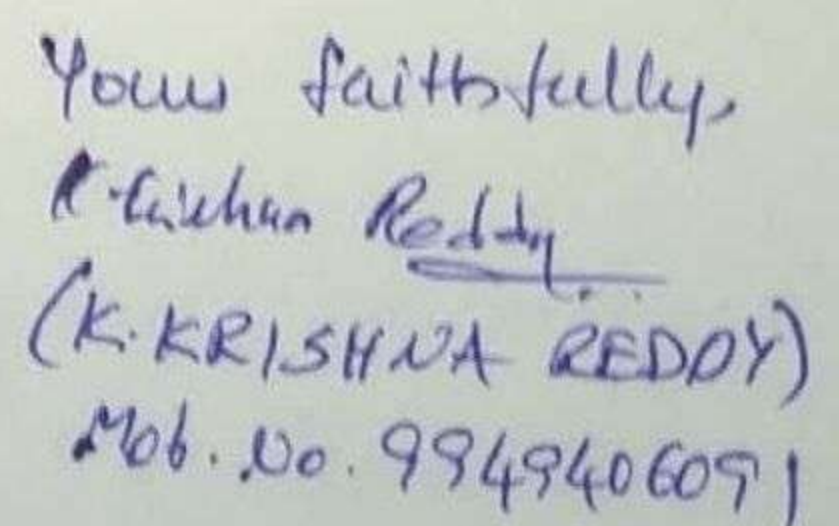 Yours faithfully,
K. Krishna Reddy
(K. KRISHNA REDDY)
Mob. No. 9949406091